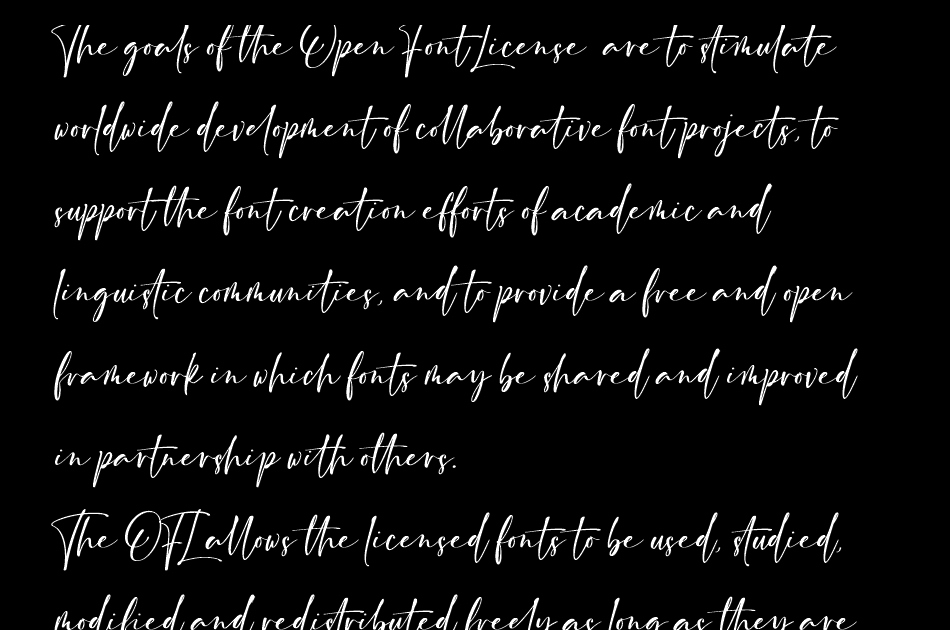 The goals of the Open Font License are to stimulate
worldwide development of collaborative font projects, to
support the font creation efforts of academic and
linguistic communities, and to provide a free and open
framework in which fonts may be shared and improved
in partnership with others.
The OFL allows the licensed fonts to be used, studied,
modified and redistributed freely as long as they are